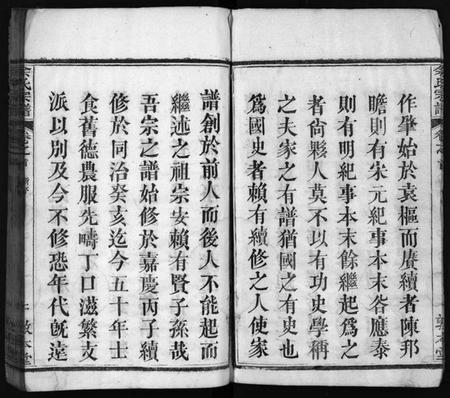 作肇始於袁樞而賡續者陳邦
瞻則有宋元紀事本末谷應泰
則有明紀事本末餘繼起爲之
者尙夥人莫不以有功史學稱
之夫家之有譜猶國之有史也
爲國史者賴有續修之人使家
譜創於前人而後人不能起而
繼述之祖宗安賴有賢子孫哉
吾宗之譜始修於嘉慶丙子續
修於同治癸亥迄今五十年士
食舊德農服先疇丁口滋繁支
派以別及今不修恐年代旣遠
余氏宗譜
敦本堂